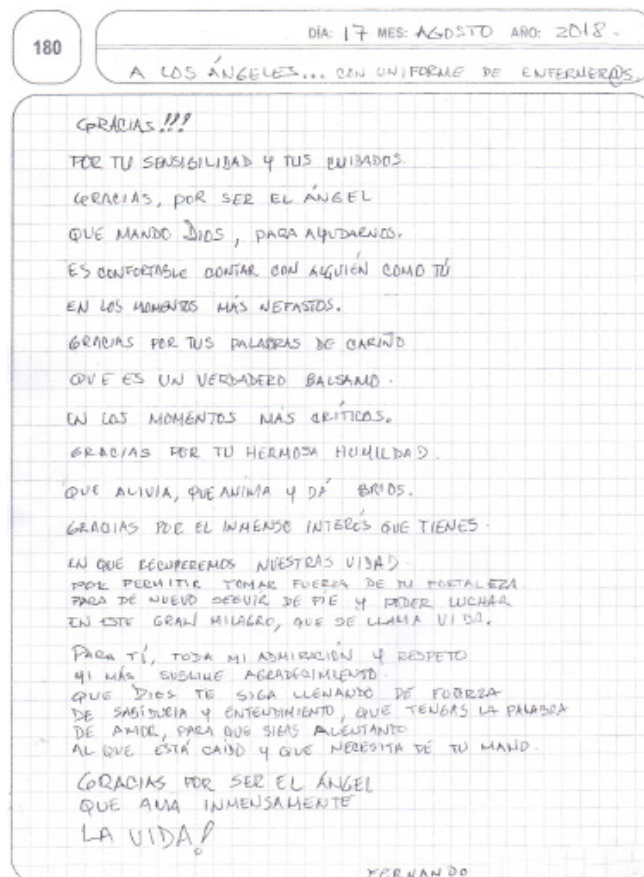 180
DÍA: 17 MES: AGOSTO AÑO: 2018.
A LOS ÁNGELES... CON UNIFORME DE ENFERMER@S
GRACIAS!!!
POR TU SENSIBILIDAD Y TUS CUIDADOS.
GRACIAS, POR SER EL ÁNGEL
QUE MANDO DIOS, PARA AYUDARNOS.
ES CONFORTABLE CONTAR CON ALGUIÉN COMO TÚ
EN LOS MOMENTOS MÁS NEFASTOS.
GRACIAS POR TUS PALABRAS DE CARIÑO
QUE ES UN VERDADERO BALSAMO.
EN LOS MOMENTOS MÁS CRÍTICOS.
GRACIAS POR TU HERMOSA HUMILDAD.
QUE ALIVIA, QUE ANIMA Y DÁ BRIOS.
GRACIAS POR EL INMENSO INTERÉS QUE TIENES.
EN QUE RECUPEREMOS NUESTRAS VIDAS.
POR PERMITIR TOMAR FUERZA DE TU FORTALEZA
PARA DE NUEVO SEGUIR DE PIE Y PODER LUCHAR
EN ESTE GRAN MILAGRO, QUE SE LLAMA VIDA.
PARA TÍ, TODA MI ADMIRACIÓN Y RESPETO
MI MÁS SUBLIME AGRADECIMIENTO.
QUE DIOS TE SIGA LLENANDO DE FUERZA
DE SABIDURIA Y ENTENDIMIENTO, QUE TENGAS LA PALABRA
DE AMOR, PARA QUE SIGAS ALENTANDO
AL QUE ESTÁ CAIDO Y QUE NECESITA DE TU MANO.
GRACIAS POR SER EL ÁNGEL
QUE AMA INMENSAMENTE
LA VIDA!
FERNANDO